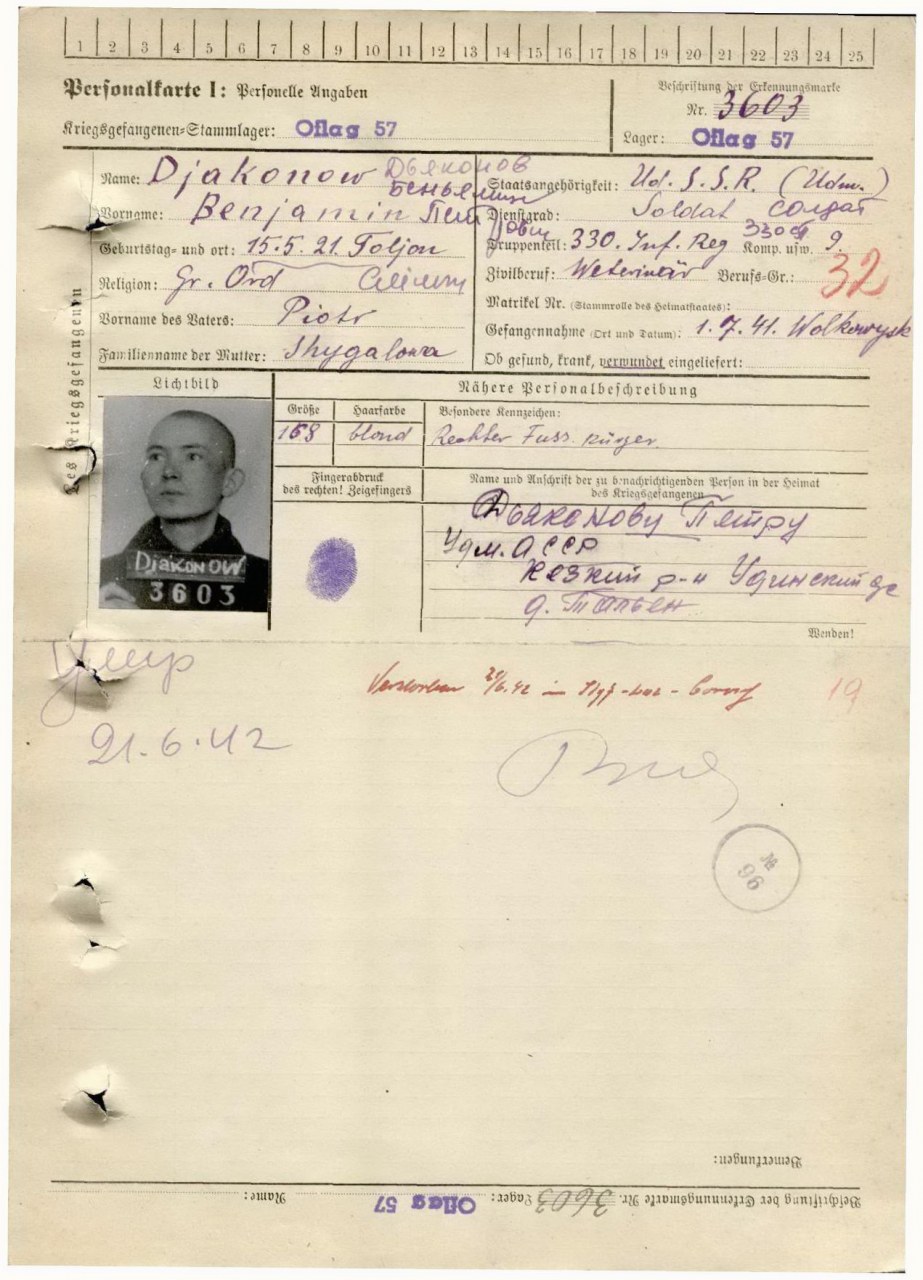 1 2 3 4 5 6 7 8 9 10 11 12 13 14 15 16 17 18 19 20 21 22 23 24 25
Personalkarte I: Personelle Angaben
Kriegsgefangenen-Stammlager: Oflag 57
Beschriftung der Erkennungsmarke
Nr. 3603
Lager: Oflag 57
Des Kriegsgefangenen
Name: Djakonow Дьяконов
Беньямин
Vorname: Benjamin Пет
рович
Geburtstag- und ort: 15.5.21. Toljon
Religion: Gr. Ord
Vorname des Vaters: Piotr
Familienname der Mutter: Shygalowa
Staatsangehörigkeit: Ud. S.S.R. (Udm.)
Dienstgrad: Soldat солдат
Truppenteil: 330. Inf. Reg Komp. usw. 9.
330 сп
Zivilberuf: Weterinär Berufs-Gr.:
32
Matrikel Nr. (Stammrolle des Heimatstaates):
Gefangennahme (Ort und Datum): 1.7.41. Wolkowysk
Ob gesund, krank, verwundet eingeliefert:
Lichtbild
Djakonow
3603
Nähere Personalbeschreibung
Größe Haarfarbe Besondere Kennzeichen:
168 blond Rechter Fuss kürzer
Fingerabdruck
des rechten! Zeigefingers
Name und Anschrift der zu benachrichtigenden Person in der Heimat
des Kriegsgefangenen
Дьяконову Петру
Удм. АССР
Кезкий р-н Удинский
д. Тальен
Wenden!
Умер
21.6.42
Verstorben 21/6.42 in
19
№
96
Bemerkungen:
Beschriftung der Erkennungsmarke Nr. 3603 Lager: Oflag 57 Name: